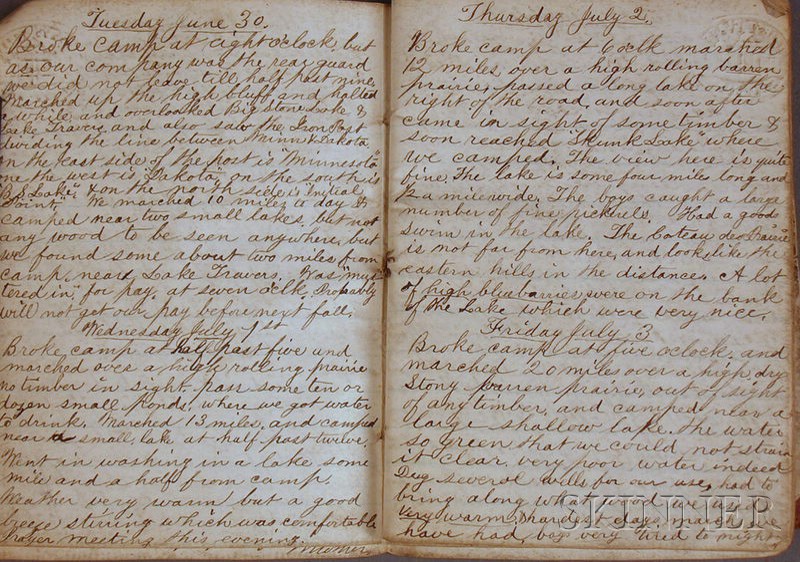 Tuesday June 30.
Broke camp at eight o'clock, but
as our company was the rear guard
we did not leave till half past nine
Marched up the high bluff and halted
a while, and overlooked Big Stone Lake &
Lake Travers and also saw the Iron Post
dividing the line between Minn & Dakota
on the east side of the post is "Minnesota"
on the west is "Dakota" on the south is
"B.S. Lake," & on the north side is "Initial
Point". We marched 10 miles to day &
camped near two small lakes, but not
any wood to be seen anywhere, but
we found some about two miles from
camp, near Lake Travers. Was "mus
tered in" for pay, at seven o'clk. Probably
will not get our pay before next fall.
Wednesday July 1st
Broke camp at half past five and
marched over a high rolling prairie
no timber in sight. pass some ten or
dozen small ponds, where we got water
to drink. Marched 13 miles, and camped
near a small lake at half past twelve
Went in washing in a lake some
mile and a half from camp.
Weather very warm but a good
breeze stirring which was comfortable
Prayer meeting this evening.
Thursday July 2.
Broke camp at 6 oclk marched
12 miles, over a high rolling barren
prairie, passed a long lake on the
right of the road, and soon after
came in sight of some timber &
soon reached Skunk Lake where
we camped. The view here is quite
fine. The lake is some four miles long and
1/2 a mile wide. The boys caught a large
number of fine pickerels. Had a good
swim in the lake. The Coteau des Prairie
is not far from here, and looks like the
eastern hills in the distance. A lot
of high blueberries were on the bank
of the Lake which were very nice.
Friday July 3
Broke camp at five oclock. and
marched 20 miles over a high, dry
Stony barren prairie, out of sight
of any timber, and camped near a
large shallow lake. the water
so green that we could not strain
it clear. very poor water indeed
Dug several wells for our use, had to
bring along what wood we used.
Very warm, & hardest days march we
have had, boys very tired to night
SKINNER